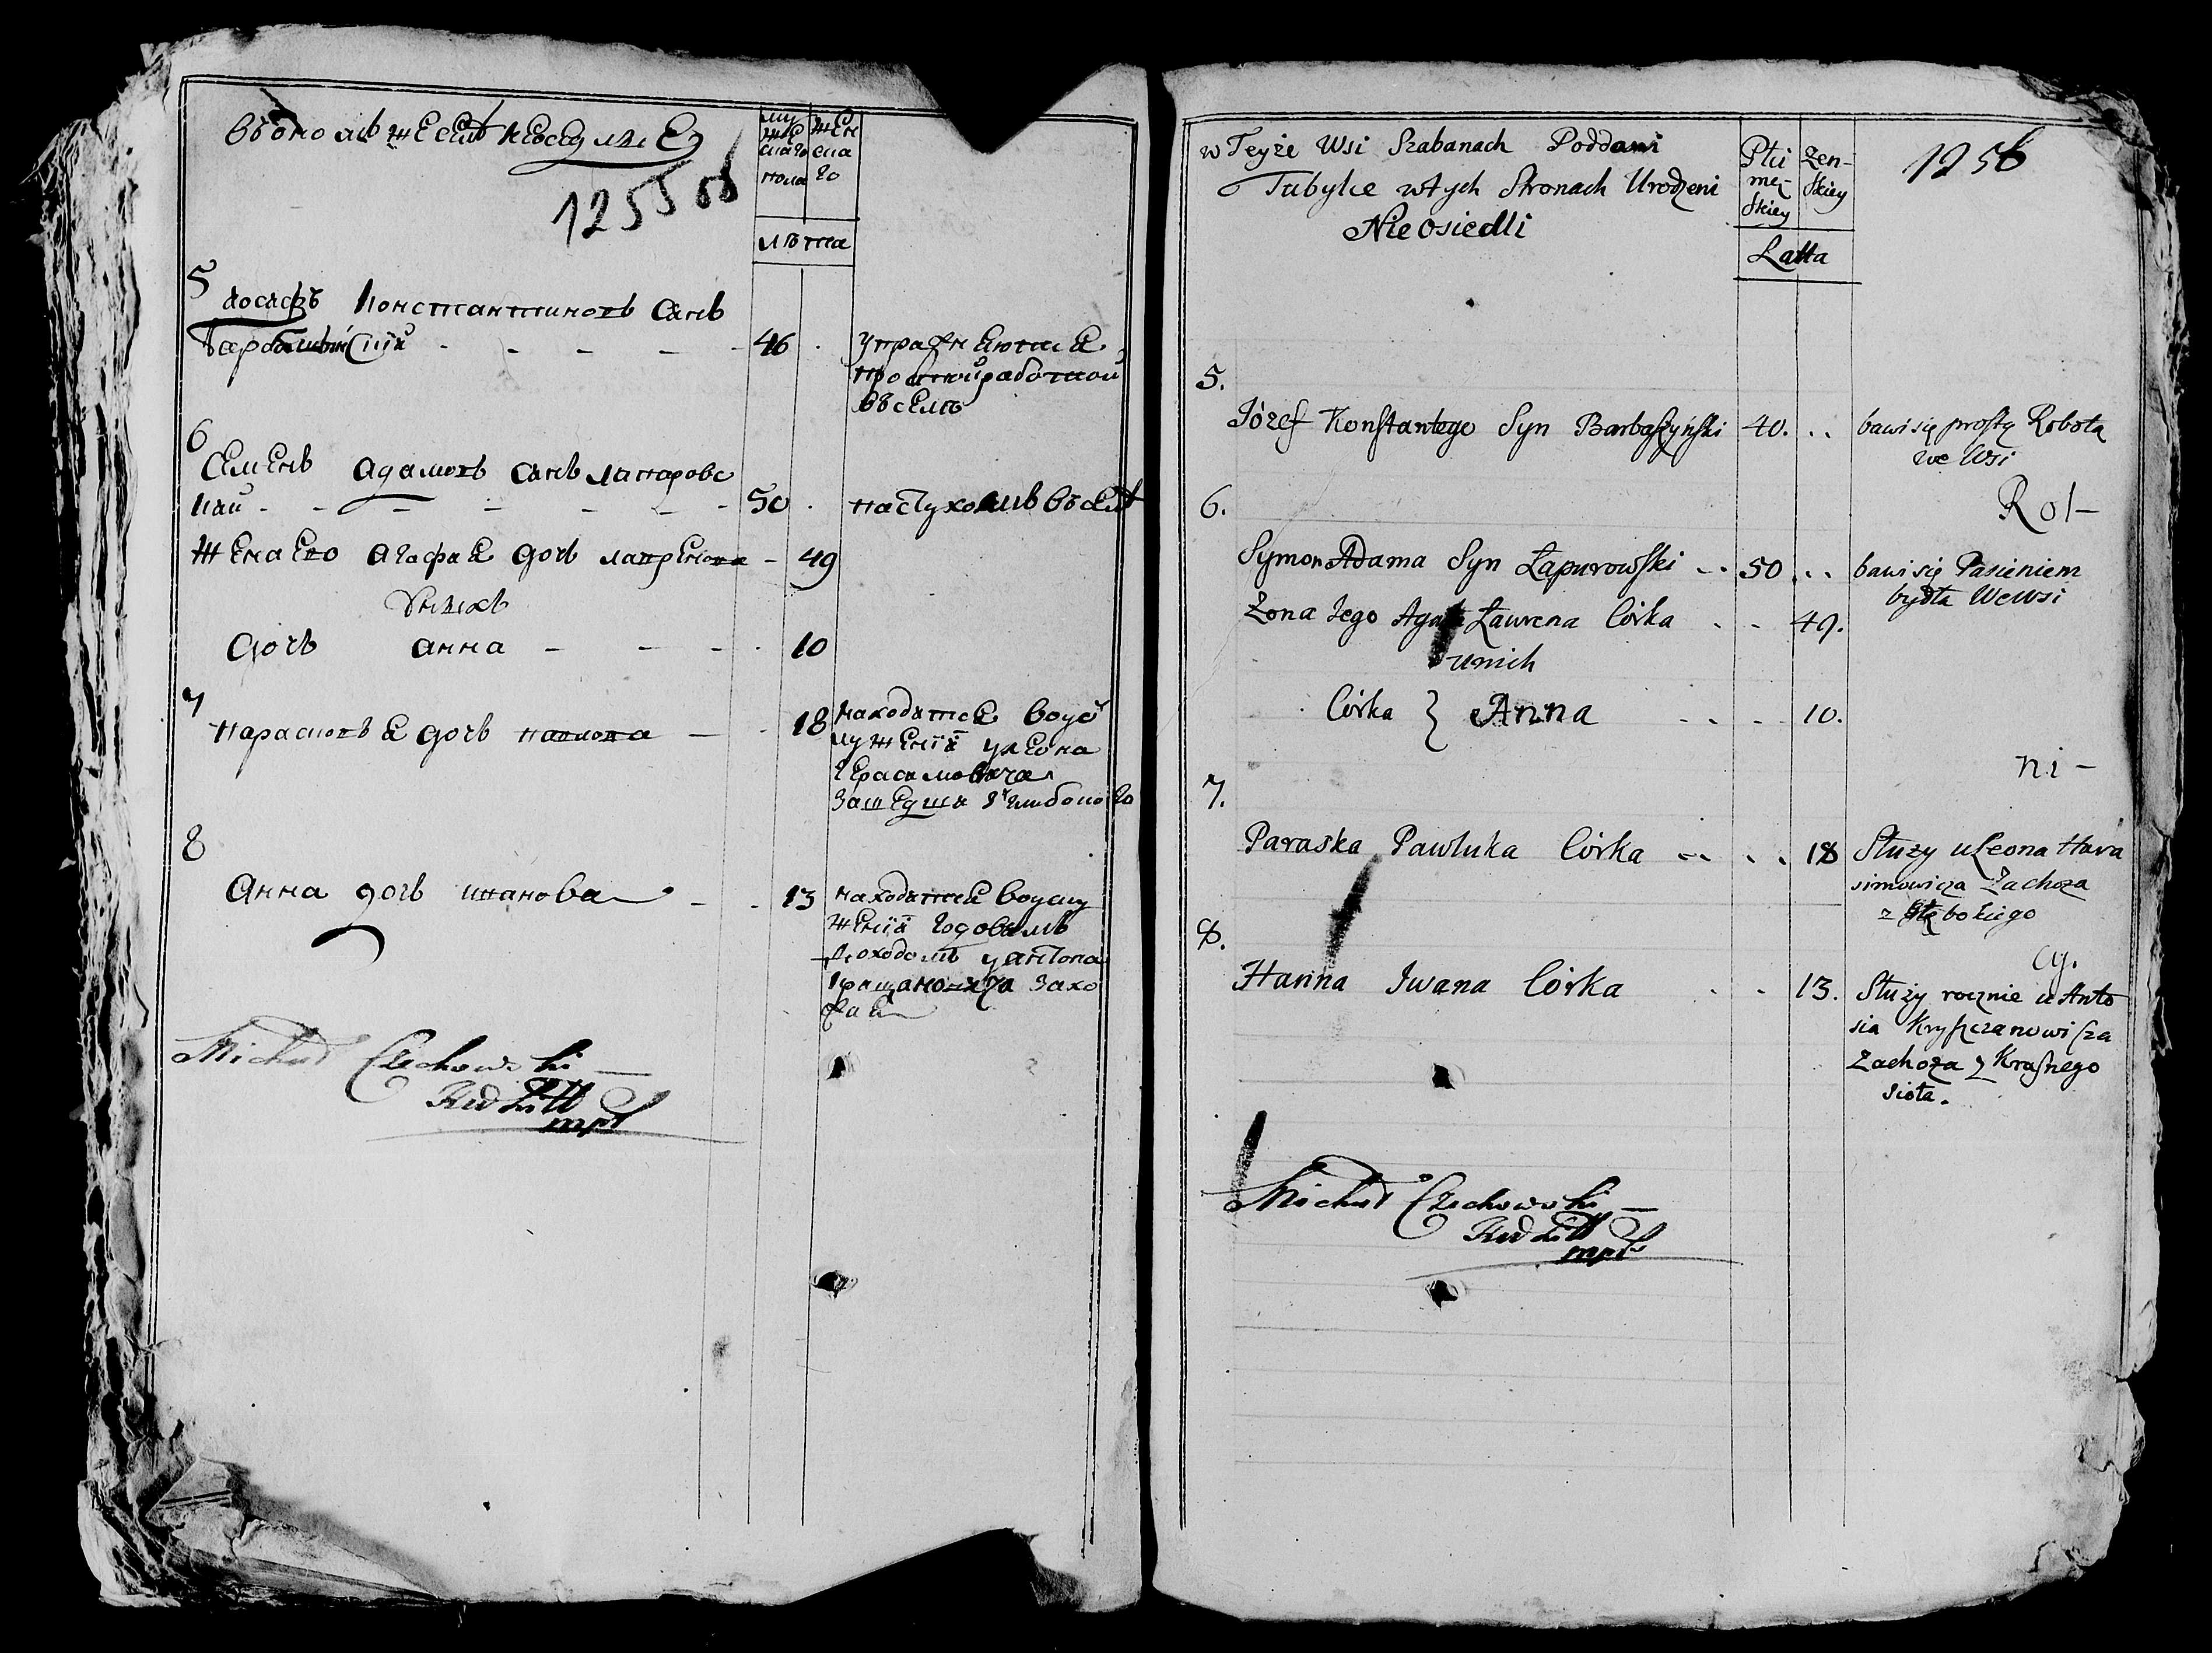 въономъ же селѣ неоседлые
1255 об
мужескаго пола
женскаго
лѣта
5
иосифъ Константиновъ сынъ
46
упражняютце
простой работой
въселѣ
6
Семенъ адамовъ сынъ лапоровс
кий
50
пастухомъ въселѣ
жена Его агафия дочь лавренова
49
унихъ
дочь анна
10
7
парасковея дочь павлова
18
находятся воус
лужении улеона
герасимовича
зашедша зглыбокого
8
анна дочь иванова
13
находятся воуслу
жении годовымъ
доходомъ уантона
захо
Michał Czechowski
mpr
w Teyże Wsi Szabanach Poddani
Tubylce w tych Stronach Urodzeni
Nie Osiedli
Płci męskiey
żenskiey
Latta
1256
5.
Józef Konstantego Syn Barbaszyński
40.
bawi się prostą Robotą
we Wsi
Rol-
6.
Symon Adama Syn Łapurowski
50
bawi się Pasieniem
bydła We wsi
Żona Jego Agata Ławrena Córka
49.
unich
Córka } Anna
10.
ni-
7.
Paraska Pawluka Córka
18
Służy u Leona Hara
simowicza Zachoża
z Głębokiego
cy.
8.
Hanna Iwana Córka
13.
Służy rocznie u Anto
sia Kryszczanowicza
Zachoża z Krasnego
sioła.
Michał Czechowski
mpr